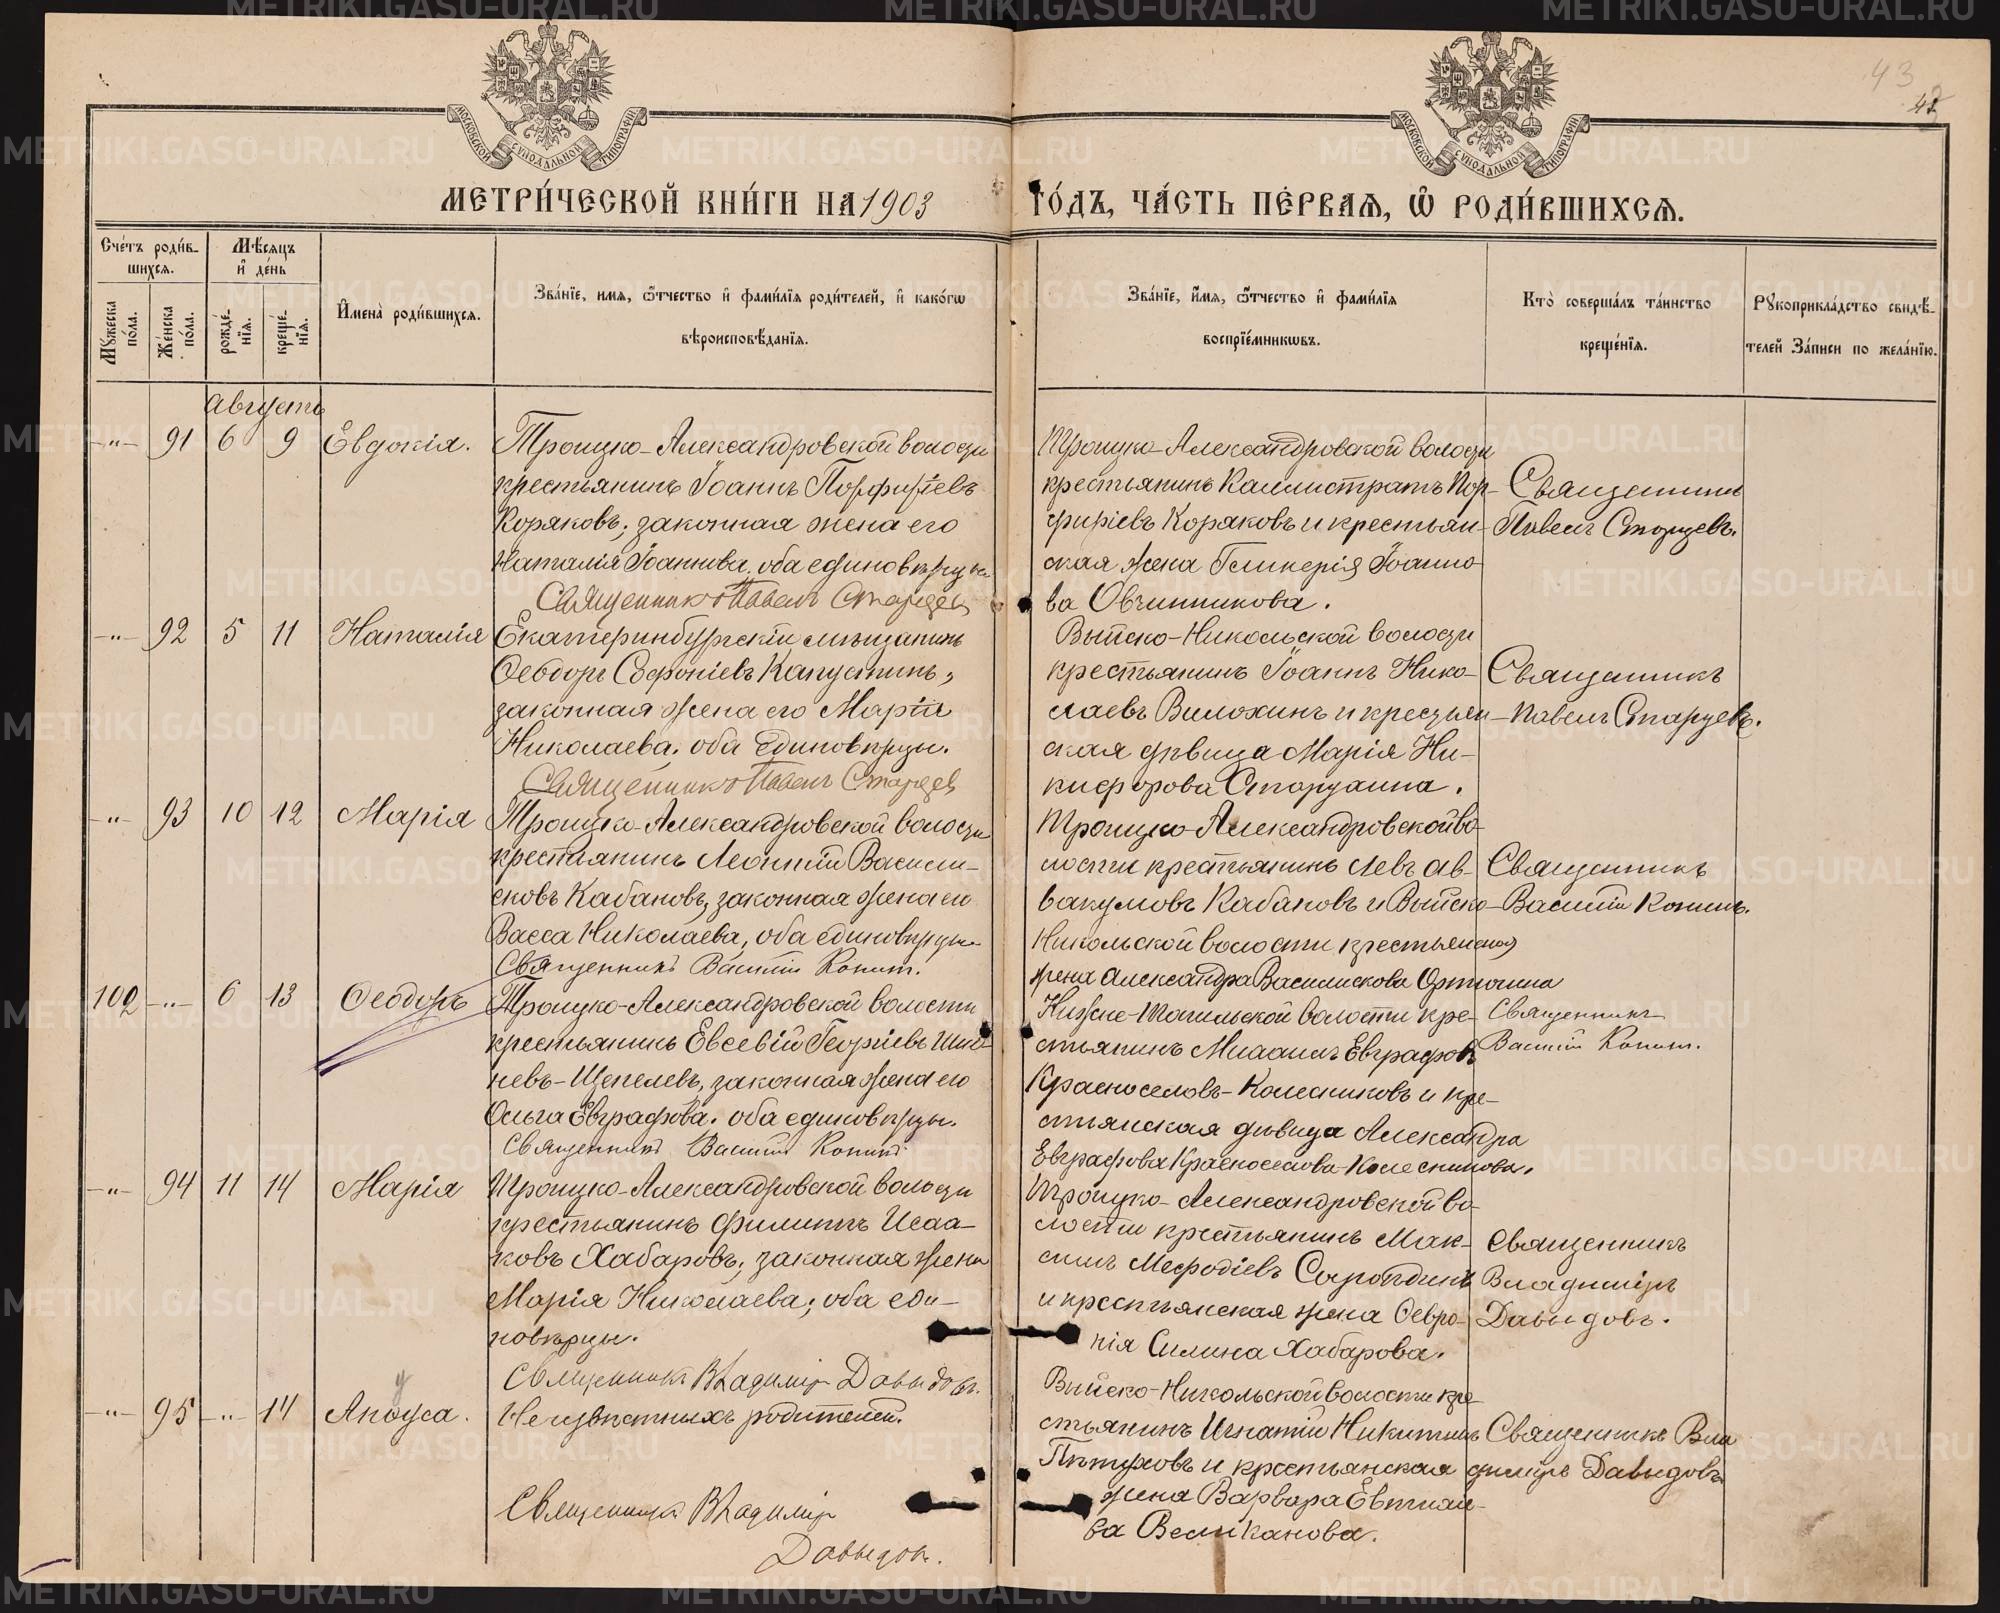 43
42
МОСКОВСКОЙ СѴНОДАЛЬНОЙ ТИПОГРАФІИ
МОСКОВСКОЙ СѴНОДАЛЬНОЙ ТИПОГРАФІИ
МЕТРИ́ЧЕСКОЙ КНИ́ГИ НА 1903
ГО́ДЪ, ЧА́СТЬ ПЕ́РВАѦ, Ѡ҆ РОДИ́ВШИХСѦ.
Сче́тъ роди́в-
шихсѧ.
Мѣ́сѧцъ
и҆ де́нь
Мꙋ́жеска
по́ла.
Же́нска
по́ла.
рожде́-
нїѧ.
креще́-
нїѧ.
И҆мена̀ роди́вшихсѧ.
Зва́нїе, имѧ, ѻ҆́тчество и҆ фами́лїѧ роди́телей, и҆ како́гѡ
вѣроисповѣ́данїѧ.
Зва́нїе, и҆́мѧ, ѻ҆́тчество и҆ фами́лїѧ
воспрїе́мникѡвъ.
Кто̀ соверша́лъ та́инство
креще́нїѧ.
Рꙋкоприкла́дство свидѣ́-
телей За́писи по жела́нїю.
Августъ
-"- 91 6 9 Евдокія.
Троицко-Александровской волости
крестьянинъ Іоаннъ Порфиріевъ
Коряковъ, законная жена его
Наталія Іоаннова. оба единоверцы.
Священникъ Павелъ Старцевъ
Троицко-Александровской волости
крестьянинъ Каллистратъ Пор-
фиріевъ Коряковъ и крестьян-
ская жена Гликерія Іоанно-
ва Овчинникова.
Священникъ
Павелъ Старцевъ.
-"- 92 5 11 Наталія
Екатеринбургскій мѣщанинъ
Ѳеодоръ Софроніевъ Капустинъ,
законная жена его Марія
Николаева. оба единовѣрцы.
Священникъ Павелъ Старцев
Выйско-Никольской волости
крестьянинъ Іоаннъ Нико-
лаевъ Вилохинъ и крестьян-
ская дѣвица Марія Ни-
кифорова
Священникъ
Павелъ Старцевъ.
-"- 93 10 12 Марія
Троицко-Александровской волости
крестьянинъ Леонтій Васили-
сковъ Кабановъ, законная жена его
Васса Николаева, оба единовѣрцы.
Священникъ Василій Конин.
Троицко-Александровской во-
лости крестьянинъ Левъ Ав-
вакумовъ Кабановъ и Выйско-
Никольской волости крестьянская
жена Александра Василискова
Священникъ
Василій Конинъ.
102 -"- 6 13 Ѳеодоръ
Троицко-Александровской волости
крестьянинъ Евсевій Георгіевъ
Щепелевъ, законная жена его
Ольга Евграфова. оба единовѣрцы.
Священникъ Василій Конин
Нижне-Тагильской волости кре-
стьянинъ Михаилъ Евграфов
Красноселовъ-Колесниковъ и кре-
стьянская дѣвица Александра
Евграфова Красноселова-Колесникова.
Священникъ
Василій Конин.
-"- 94 11 14 Марія
Троицко-Александровской волости
крестьянинъ Филиппъ Исаа-
ковъ Хабаровъ, законная жена
Марія Николаева, оба еди-
новѣрцы.
Священникъ Владиміръ Давыдовъ.
Троицко-Александровской во-
лости крестьянинъ Мак-
симъ Меѳодіевъ
и крестьянская жена Февро-
нія Силина Хабарова.
Священникъ
Владиміръ
Давыдовъ.
-"- 95 -"- 14
Неизвѣстныхъ родителей.
Священникъ Владиміръ
Давыдовъ.
Выйско-Никольской волости кре-
стьянинъ Игнатій Никитинъ
Пѣтуховъ и крестьянская
жена Варвара
ва Великанова.
Священникъ Вла
диміръ Давыдовъ
METRIKI.GASO-URAL.RU